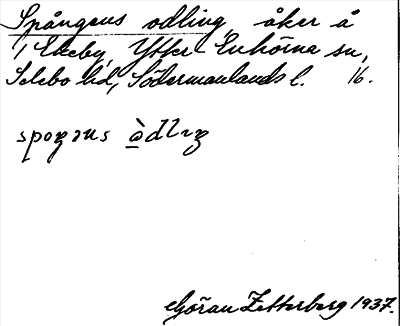 Spångens odling, åker å
1 Ekeby, Ytter Enhörna sn,
Selebo hd, Södermanlands l. 16.
spoŋəns òdlıŋ
Göran Zetterberg 1937.